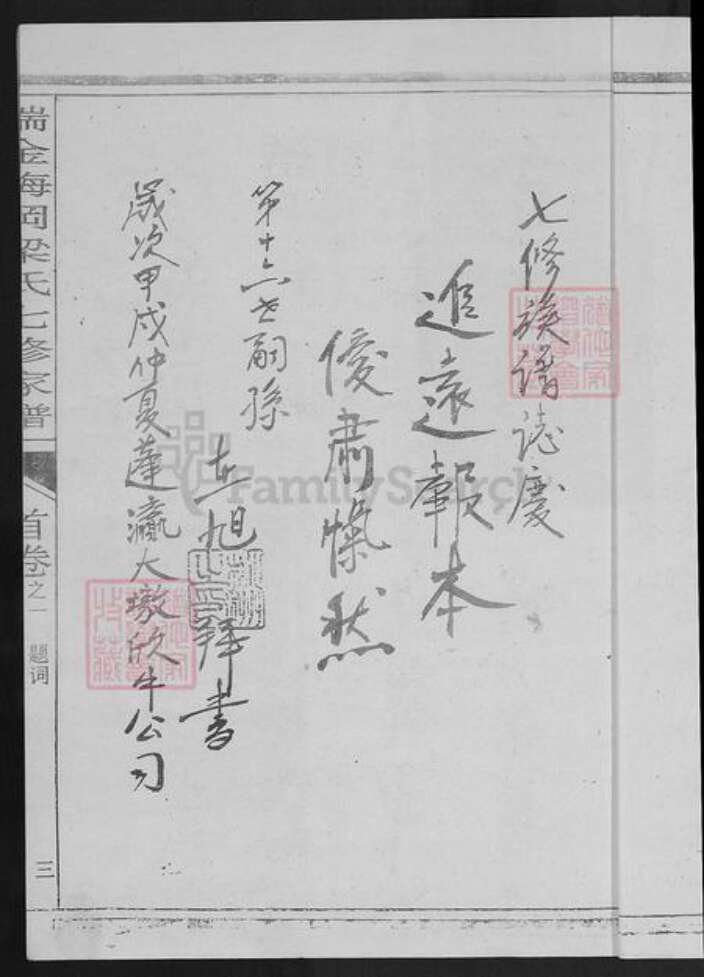 七修族譜誌慶
追遠報本
優肅愾然
第十六世嗣孫
志旭 拜書
歲次甲戌仲夏蓬瀛大墩欣牛公司
瑞金海岡梁氏七修家譜
首卷之一 题词
三
FamilySearch